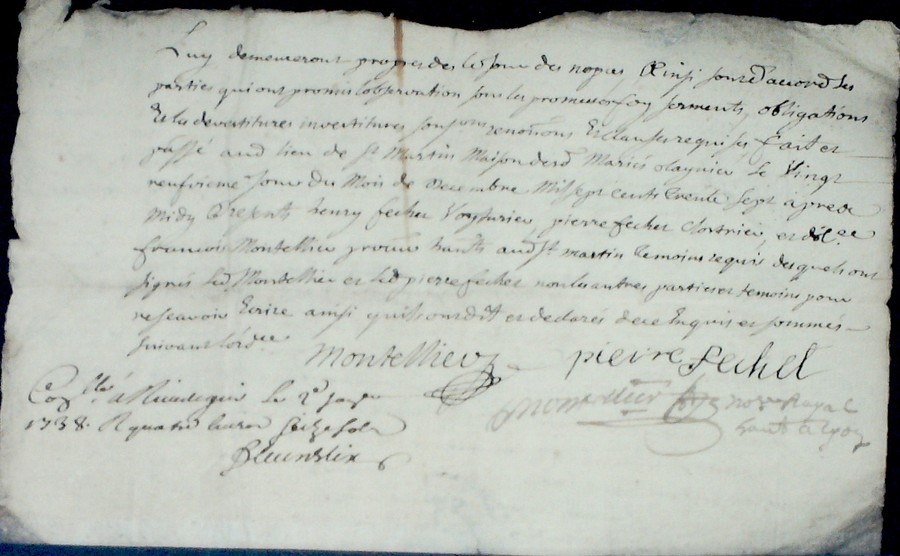 Luy demeureront propres des le jour des nopces Ainsi sont d'accord les
parties qui ont promis l'observation sous les promesses foy serments, obligations
Et les devestitures investitures renonons Et clauses requises fait et
passé aud lieu de St Martin Maison desd Mariés le Vingt
neufvieme Jour du Mois de Decembre Mil sept cents trente sept apres
Midy Presents henry fechet pierre fechet et
francois Montellier habts aud St martin temoins requis desquels ont
signés led Montellier et led pierre fechet non les autres parties et temoins pour
ne scavoir Ecrire ainsi qu'ils ont dit et declarés de ce Enquis et sommés
suivant l'ordce
Montellier pierre fechet
Coxllé à le 2e
1738. R quatre livres seize sols
not Royal